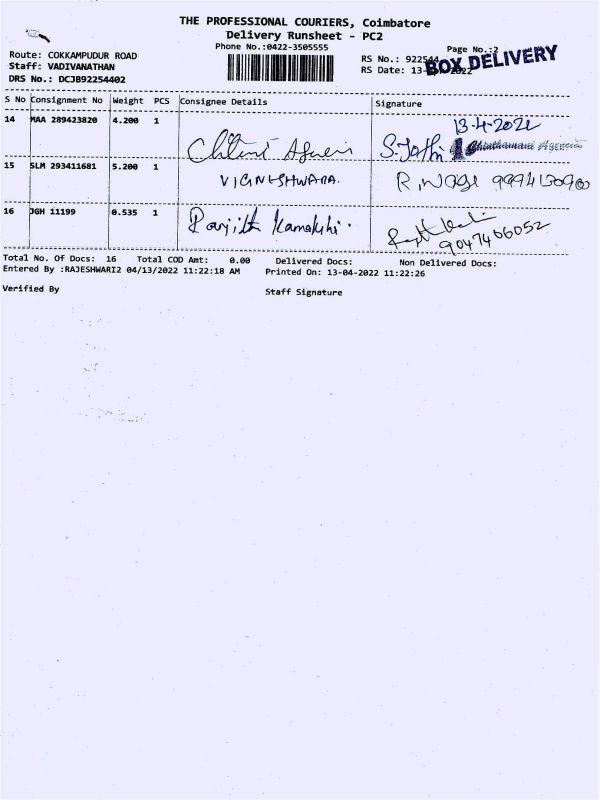 THE PROFESSIONAL COURIERS, Coimbatore
Delivery Runsheet - PC2
Phone No.:0422-3505555
Page No.:2
Route: COKKAMPUDUR ROAD
Staff: VADIVANATHAN
DRS No.: DCJB92254402
RS No.: 922544
RS Date: 13- 2022
BOX DELIVERY
S No Consignment No Weight PCS Consignee Details Signature
14 MAA 289423820 4.200 1 13-4-2022
S. Chinthamani Agencies
15 SLM 293411681 5.200 1
VIGNESHWARA. R.
16 JGH 11199 0.535 1 Ranjith Kamakshi.
9047406052
Total No. Of Docs: 16 Total COD Amt: 0.00 Delivered Docs: Non Delivered Docs:
Entered By :RAJESHWARI2 04/13/2022 11:22:18 AM Printed On: 13-04-2022 11:22:26
Verified By Staff Signature